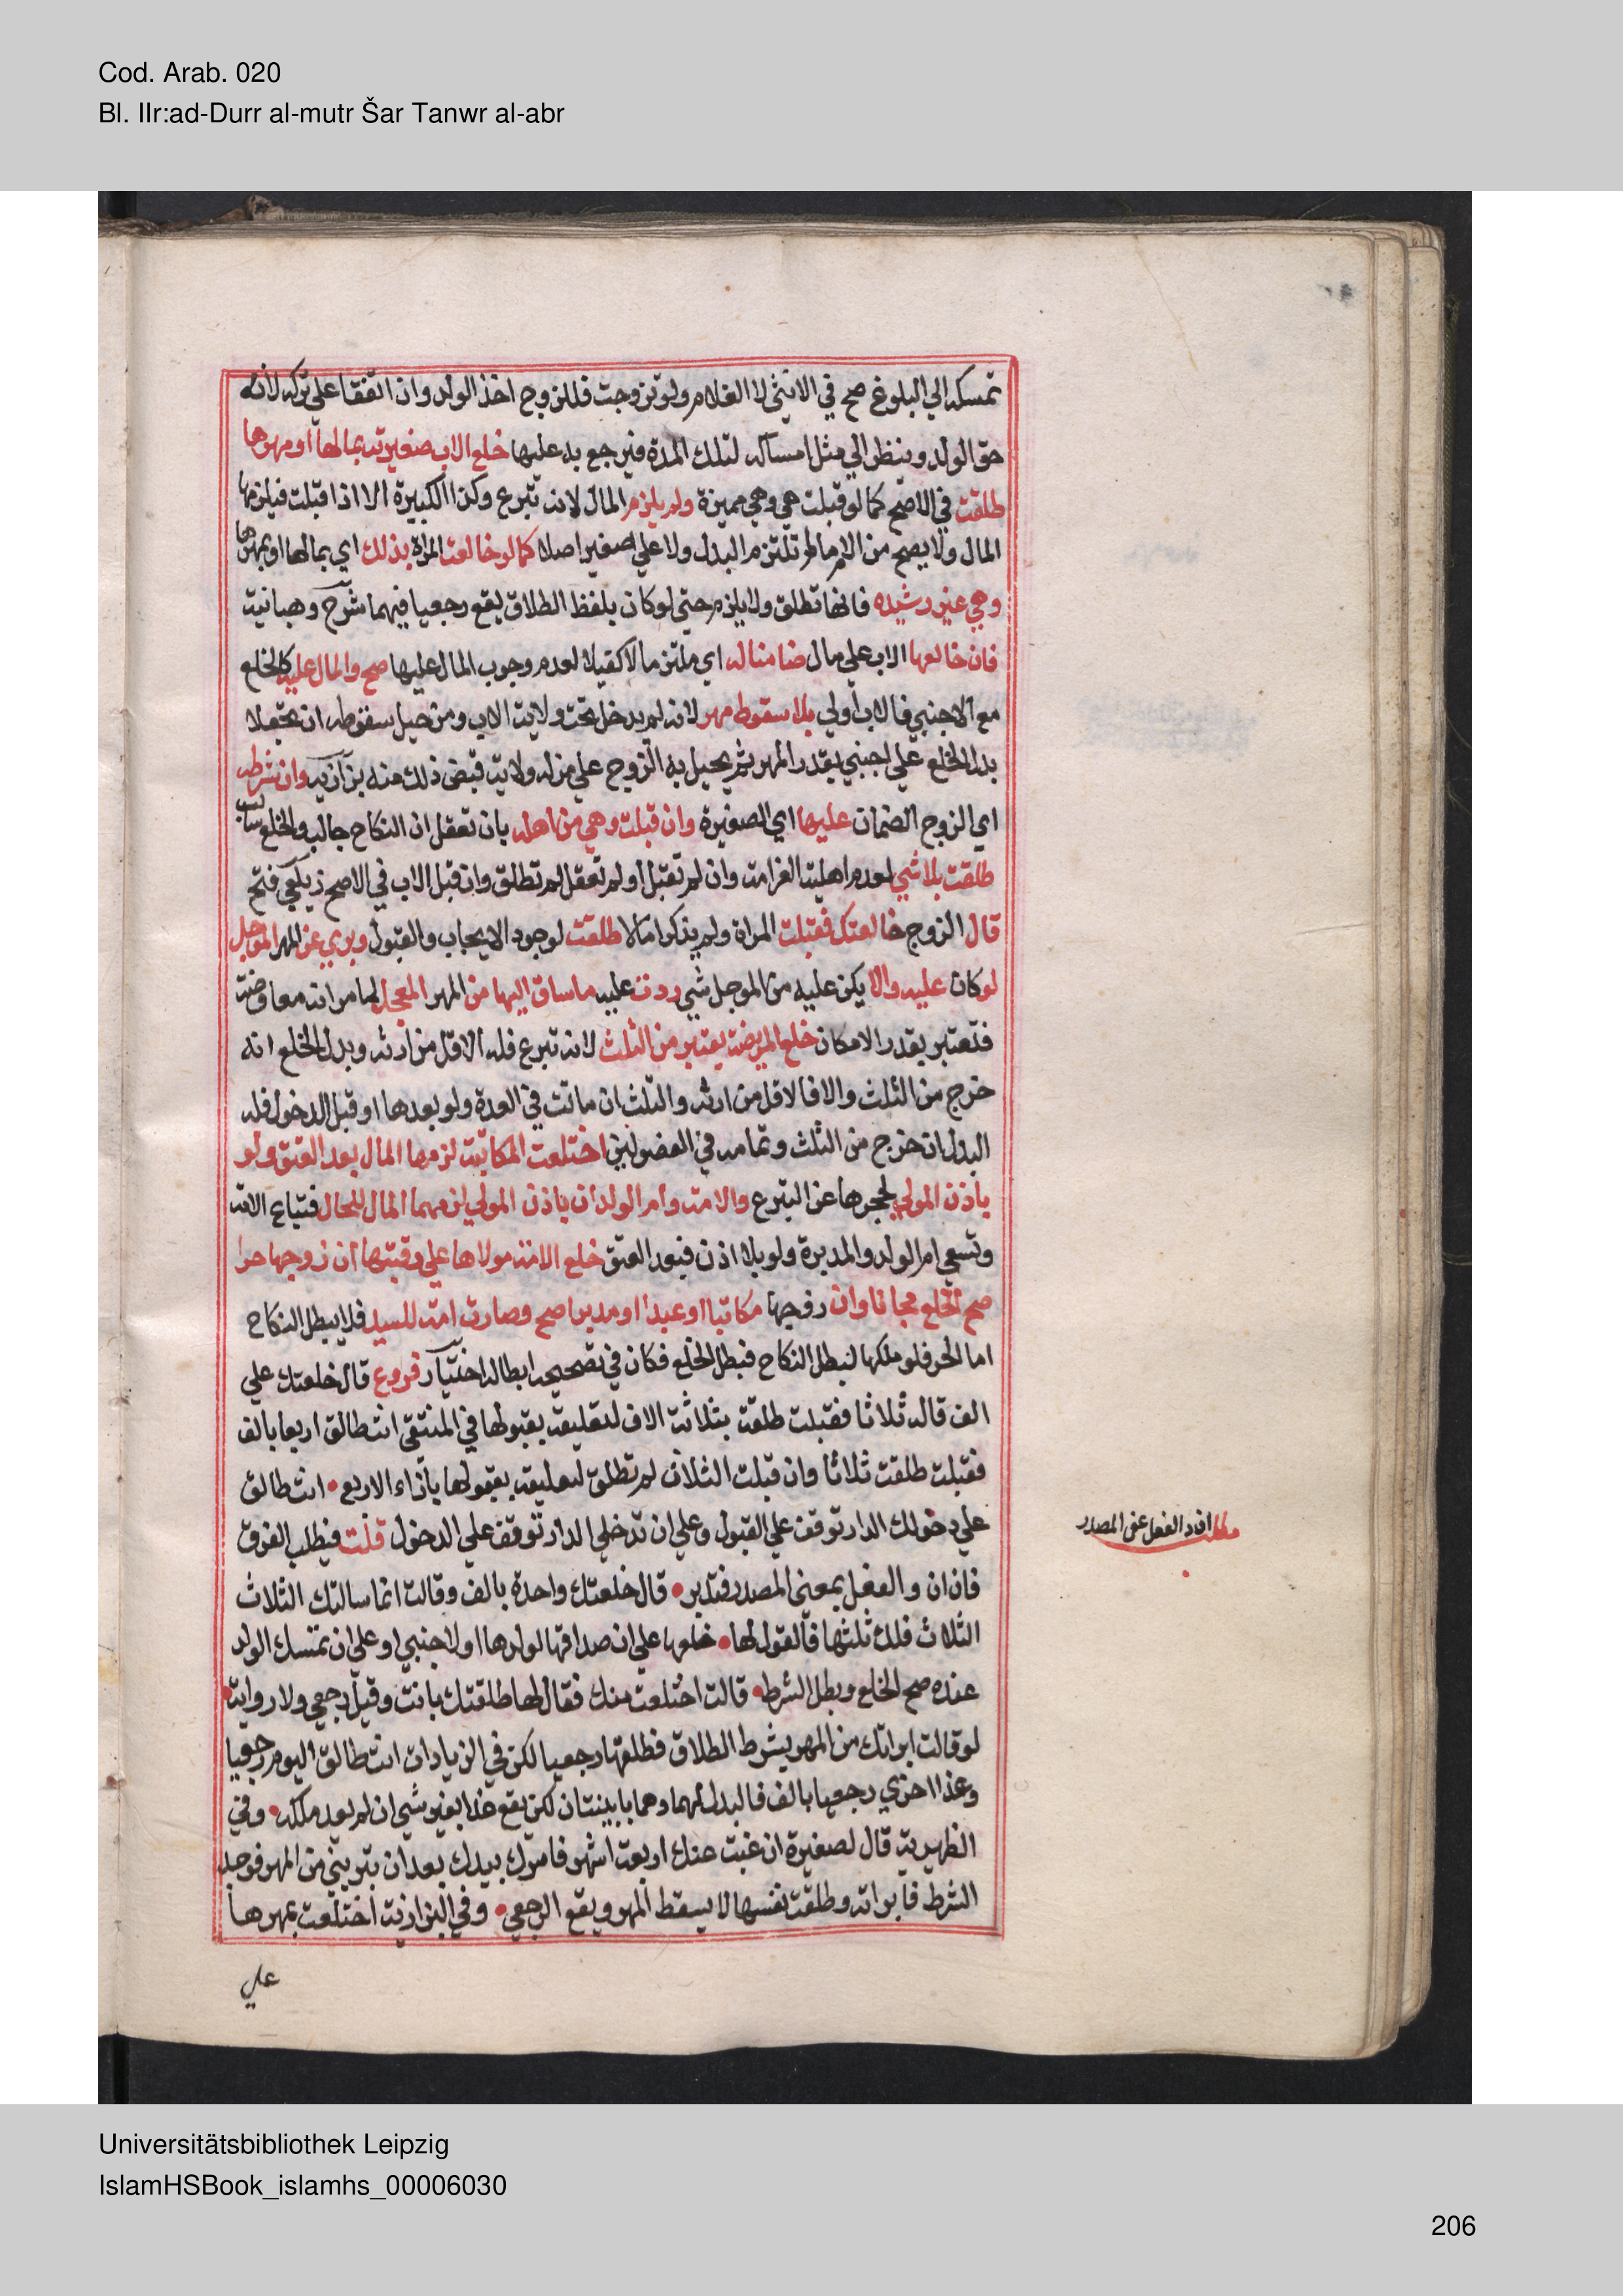 Cod. Arab. 020
Bl. IIr:ad-Durr al-mutr Šar Tanwr al-abr
تمسكه الي البلوغ صح في الانثي لا الغلام ولو تزوجت فللزوج اخذ الولد وان اتفقا علي تركه لانه
حق الولد وينظر الي مثل امساكه لتلك المدة فيرجع به عليها خلع الاب صغيرته بمالها او مهرها
طلقت في الاصح كما لو قبلت هي وهي مميزة ولم يلزم المال لانه تبرع وكذا الكبيرة الا اذا قبلت فيلزمها
المال ولا يصح من الام مالم تلتزم البدل ولا علي صغير اصلا كما لو خالعت المراة بذلك اي بمالها او بمهرها
وهي غير رشيده فانها تطلق ولا يلزم حتي لو كان بلفظ الطلاق يقع رجعيا فيهما شرح وهبانية
فان خالعها الاب علي مال ضامنا له اي ملتزما لا كفيلا لعدم وجوب المال عليها صح والمال عليه كالخلع
مع الاجنبي فالاب اولي بلا سقوط مهر لانه لم يدخل تحت ولاية الاب ومن حيل سقوطه ان يجعلا
بدل الخلع علي اجنبي بقدر المهر ثم يحيل به الزوج علي من له ولاية قبض ذلك منه بزازية وان شرطه
اي الزوج الضمان عليها اي الصغيرة وان قبلت وهي من اهله بان تعقل ان النكاح جالب والخلع سالب
طلقت بلا شي لعدم اهلية الغرامة وان لم تقبل او لم تعقل لم تطلق وان قبل الاب في الاصح زيلعي فتح
قال الزوج خالعتك فقبلت المراة ولم يذكرا مالا طلقت لوجود الايجاب والقبول وبري عن المهر الموجل
لو كان عليه والا يكن عليه من الموجل شي ردت عليه ما ساق اليها من المهر المعجل لما مر انه معاوضة
فتعتبر بقدر الامكان خلع المريضة يعتبر من الثلث لانه تبرع فله الاقل من ارثه وبدل الخلع انه
خرج من الثلث والا فالاقل من ارثه والثلث ان ماتت في العدة ولو بعدها او قبل الدخول فله
البدل ان خرج من الثلث وتمامه في الفصولين اختلعت المكاتبة لزمها المال بعد العتق ولو
باذن المولي لحجرها عن التبرع والامة وام الولد ان باذن المولي لزمهما المال للحال فتباع الامة
وتسعي ام الولد والمدبرة ولو بلا اذن فبعد العتق خلع الامة مولاها علي رقبتها ان زوجها حرا
صح الخلع مجانا وان زوجها مكاتبا او عبدا او مدبرا صح وصارت امة للسيد فلا يبطل النكاح
اما الحر فلو ملكها لبطل النكاح فبطل الخلع فكان في تصحيحه ابطاله اختيار فروع قال خلعتك علي
الف قاله ثلاثا فقبلت طلقت بثلاثة الاف لتعليقه بقبولها في المنتقي انت طالق اربعا بالف
فقبلت طلقت ثلاثا وان قبلت الثلاث لم تطلق لتعليقه بقبولها بآزاء الاربع انت طالق
علي دخولك الدار توقف علي القبول وعلي ان تدخلي الدار توقف علي الدخول قلت فيطلب الفرق
مطلب ان والفعل عن المصدر
فان ان والفعل بمعني المصدر فتدبر قال خلعتك واحدة بالف وقالت انما سالتك الثلاث
الثلاث فلك ثلثها فالقول لها خلعها علي ان صداقها لولدها او لاجنبي او علي ان تمسك الولد
عنده صح الخلع وبطل الشرط قالت اختلعت منك فقال لها طلقتك بانت وقيل رجعي ولا رواية
لو قالت ابراتك من المهر بشرط الطلاق فطلقها رجعيا لكن في الزيادات انت طالق اليوم رجعيا
وغدا اخري رجعيا بالف فالبدل لهما وهما باينتان لكن يقع غدا بغير شي ان لم يعد ملكه وفي
الظهيرية قال لصغيرة ان غبت عنك اربعة اشهر فامرك بيدك بعد ان تبريني من المهر فوجد
الشرط فابراته وطلقت نفسها لا يسقط المهر ويقع الرجعي وفي البزازية اختلعت بمهرها
علي
Universitätsbibliothek Leipzig
IslamHSBook_islamhs_00006030
206